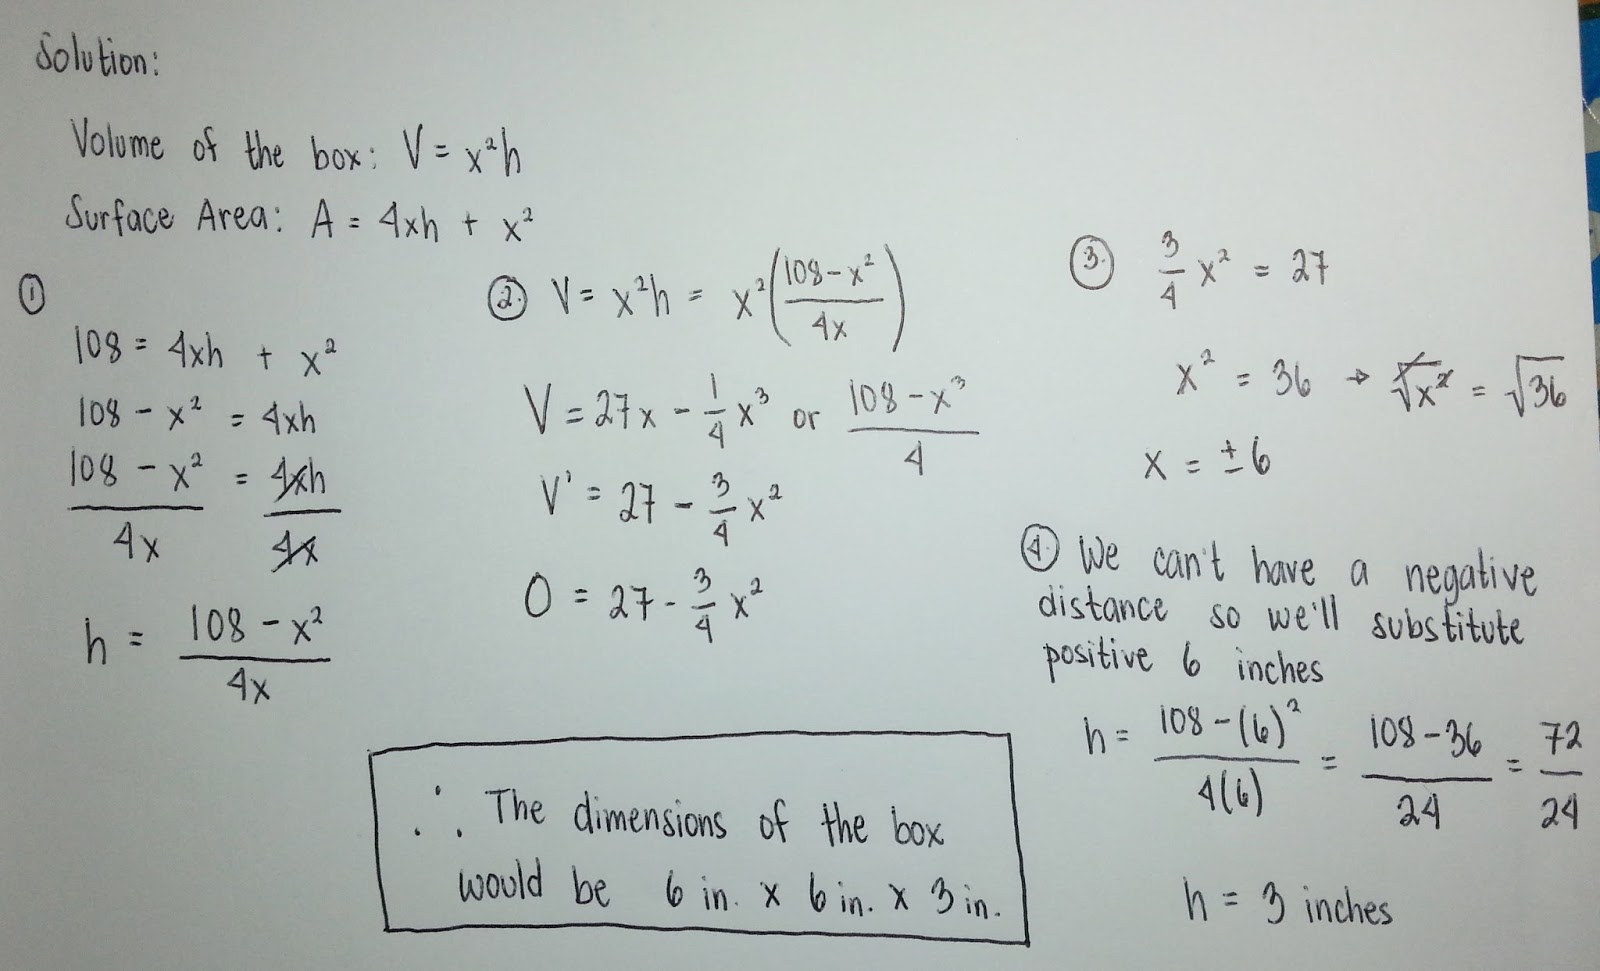 Solution:
Volume of the box: V = x²h
Surface Area: A = 4xh + x²
①
108 = 4xh + x²
108 - x² = 4xh
(108 - x²)/4x = 4xh/4x
h = (108 - x²)/4x
②. V = x²h = x²((108 - x²)/4x)
V = 27x - 1/4 x³ or (108 - x³)/4
V' = 27 - 3/4 x²
0 = 27 - 3/4 x²
③. 3/4 x² = 27
x² = 36 → √x² = √36
x = ±6
④. We can't have a negative
distance so we'll substitute
positive 6 inches
h = (108 - (6)²)/4(6) = (108 - 36)/24 = 72/24
h = 3 inches
∴ The dimensions of the box
would be 6 in. x 6 in. x 3 in.